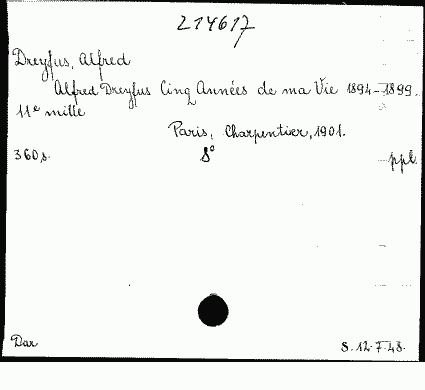 214617
Dreyfus, Alfred
Alfred Dreyfus Cinq Années de ma Vie 1894-1899.
11e mille
Paris, Charpentier, 1901.
360 s. 8° ppl.
Dar S. 12.7.48.